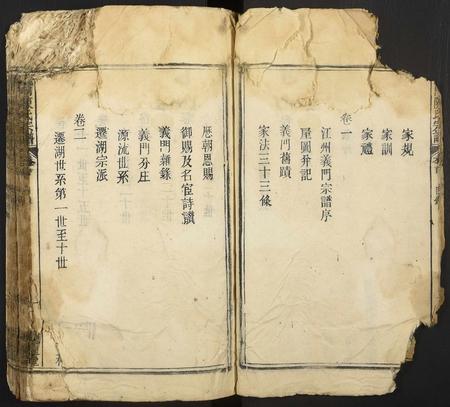 家規
家訓
家禮
卷一
江州義門宗譜序
屋圖并記
義門舊蹟
家法三十三條
歷朝恩賜
御賜及名宦詩讚
義門雜錄
義門分庄
源流世系
遷湖宗派
卷二
遷湖世系第一世至十世